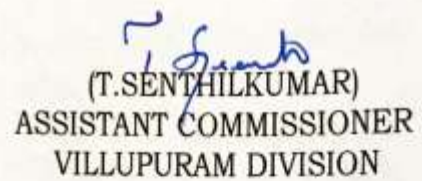 (T.SENTHILKUMAR)
ASSISTANT COMMISSIONER
VILLUPURAM DIVISION